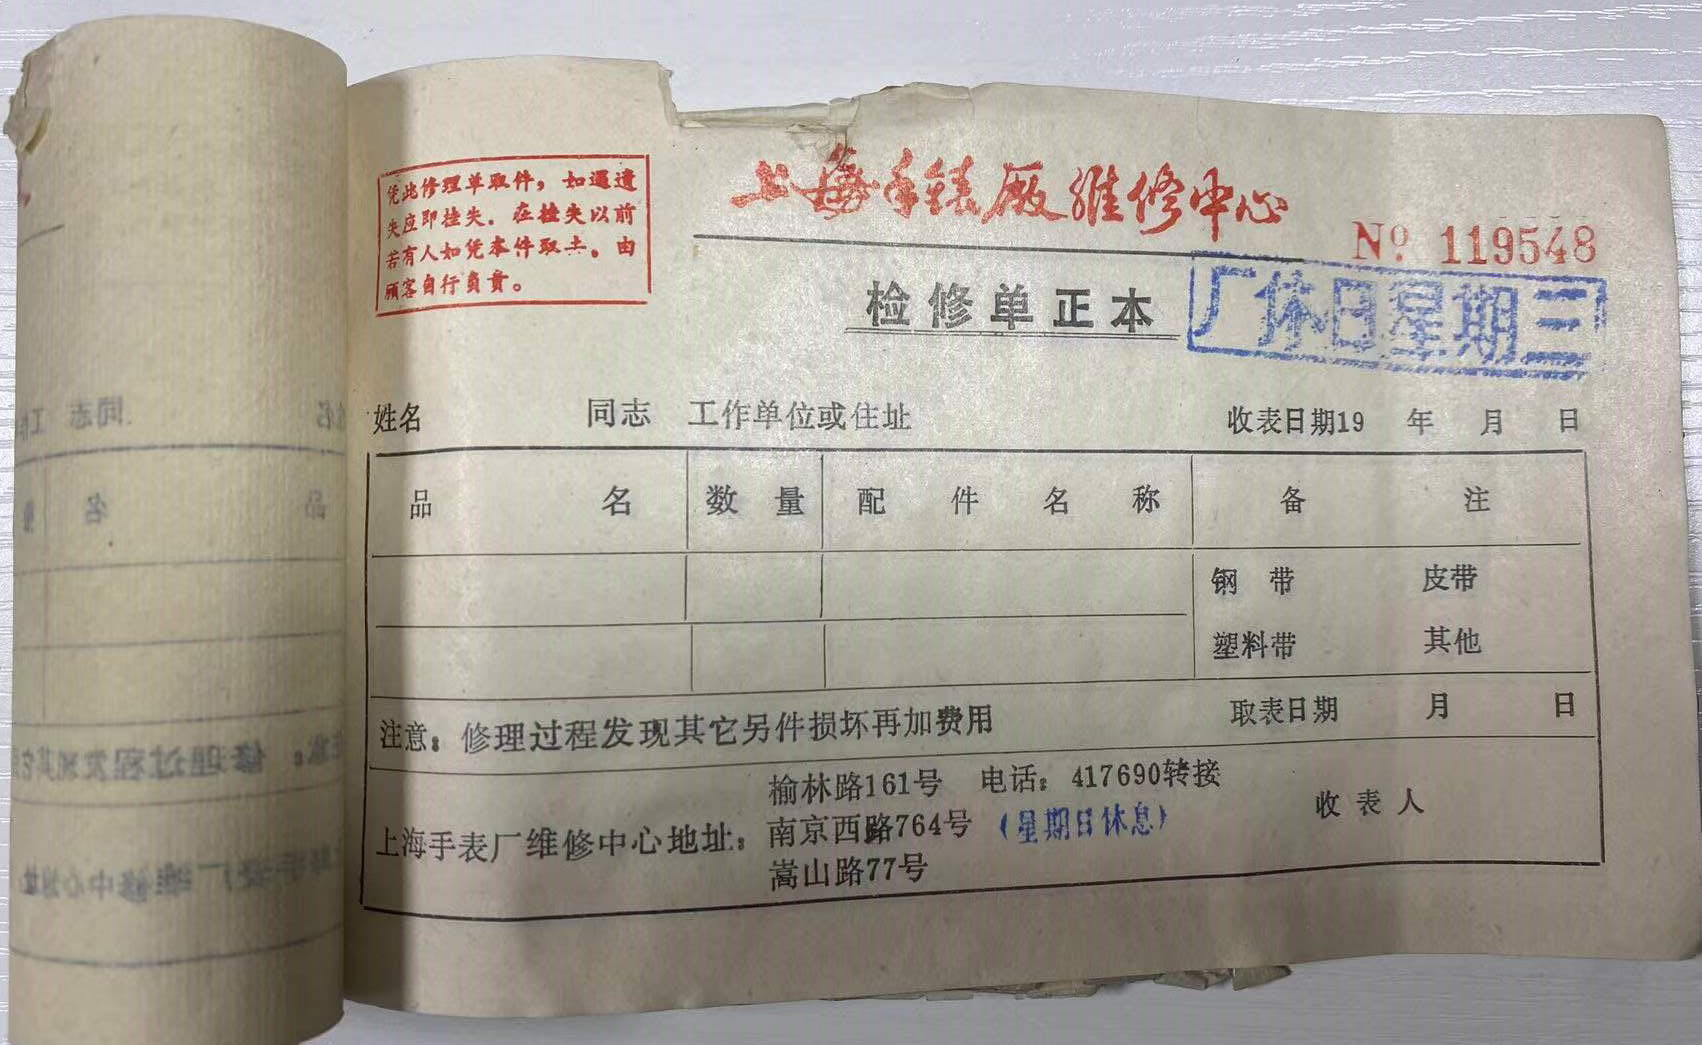 凭此修理单取件，如遇遗
失应即挂失。在挂失以前
若有人如凭本件取去。由
顾客自行负责。
上海手錶厰维修中心
№ 119548
检修单正本
厂休日星期三
姓名 同志 工作单位或住址 收表日期19 年 月 日
品 名 数 量 配 件 名 称 备 注
钢 带 皮带
塑料带 其他
注意：修理过程发现其它另件损坏再加费用 取表日期 月 日
榆林路161号 电话：417690转接
上海手表厂维修中心地址：南京西路764号（星期日休息） 收 表 人
嵩山路77号